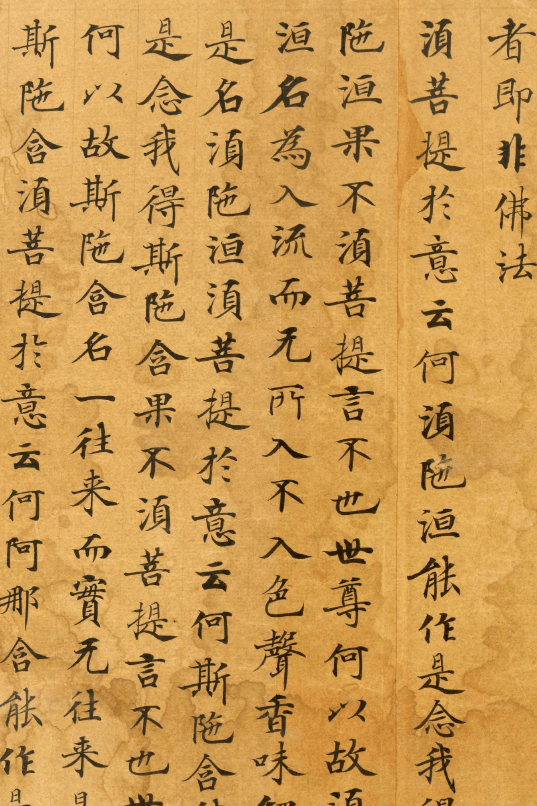 者即非佛法
湏菩提於意云何湏陁洹能作是念我得
陁洹果不湏菩提言不也世尊何以故湏
洹名為入流而无所入不入色聲香味
是名湏陁洹湏菩提於意云何斯陁含
是念我得斯陁含果不湏菩提言不也世
何以故斯陁含名一往来而實无往来是
斯陁含湏菩提於意云何阿那含能作是